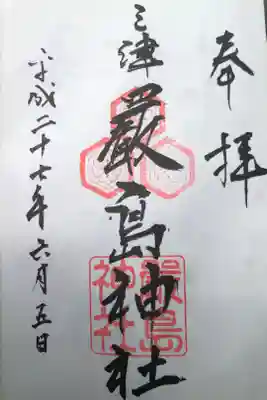 奉拝
三津
厳島神社
嚴島
神社
平成二十七年六月五日